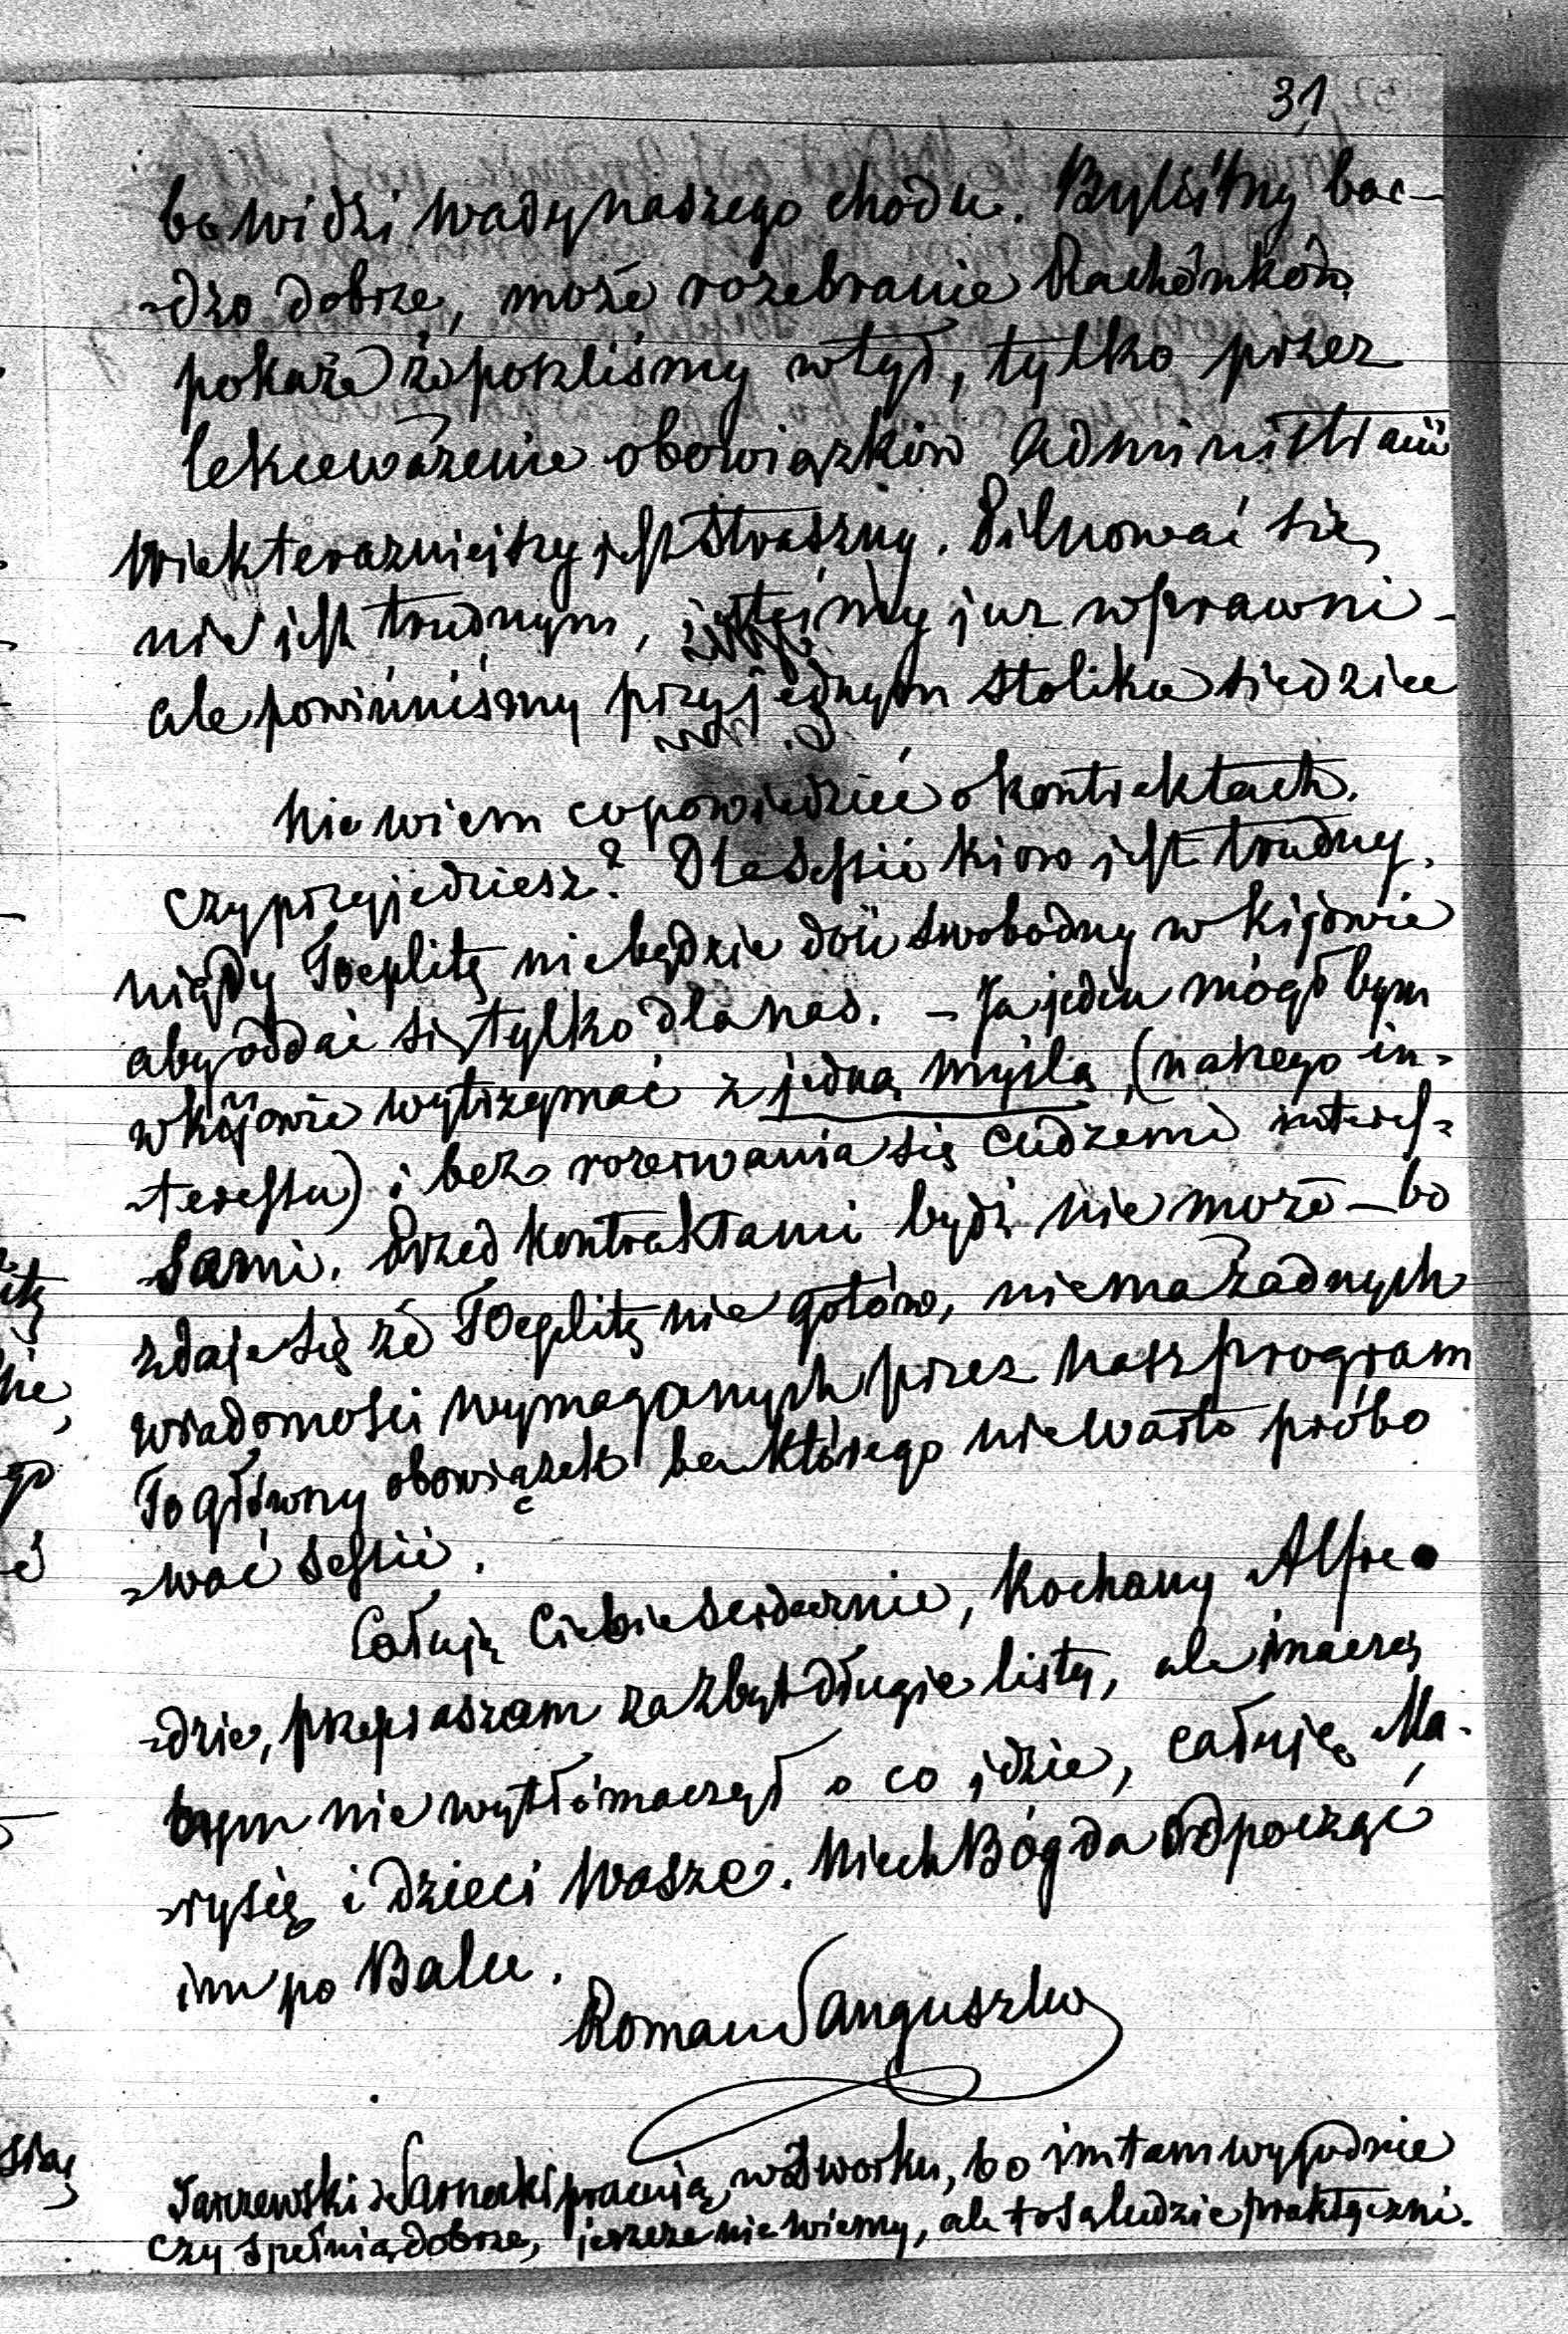 31
bo widzi wady naszego chodu. Byliśmy bar-
-dzo dobrze, może rozebranie Rachónków
pokaże że poszliśmy w tył, tylko przez
lekceważenie obowiązków Administracii
Wiek terazniejszy jest straszny. Pilnować się
nie jest trudnym, jesteśmy juz wprawni -
ale powinniśmy przy jednym stoliku siedziec
Nie wiem co powiedzieć o kontraktach.
Czy przyjedziesz? Dla Sessii Kiow jest trudny.
nigdy Toeplitz nie będzie dość swobodny w Kijowie
aby oddać się tylko dla nas. – Ja jeden mógłbym
w Kijowie wytrzymać z jedną myślą (naszego in-
-teressu) i bez rozerwania się cudzemi interes-
-sami. Przed Kontraktami bydź nie może – bo
zdaje się że Toeplitz nie gotów, niema żadnych
wiadomości wymaganych przez nasz program
To główny obowiązek bez którego nie warto próbo
-wać sessii.
Całuję Ciebie serdecznie, Kochany Alfre
-dzie, przepraszam za zbyt długie listy, ale inaczej
bym nie wytłómaczył o co idzie, całuję Ma-
-rysię i dzieci Wasze. Niech Bóg da odpocząć
im po Balu.
Roman Sanguszko
Jarzewski i Sarnecki pracują w Dworku, bo im tam wygodnie
czy spełnią dobrze, jeszcze nie wiemy, ale to są ludzie praktyczni.